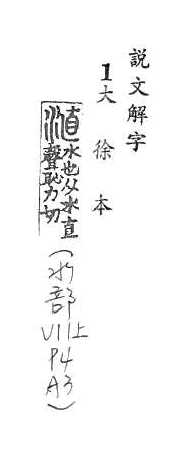 説文解字
1大徐本
淔水也从水直
聲恥力切
(水部
VIII上
P4
A3)